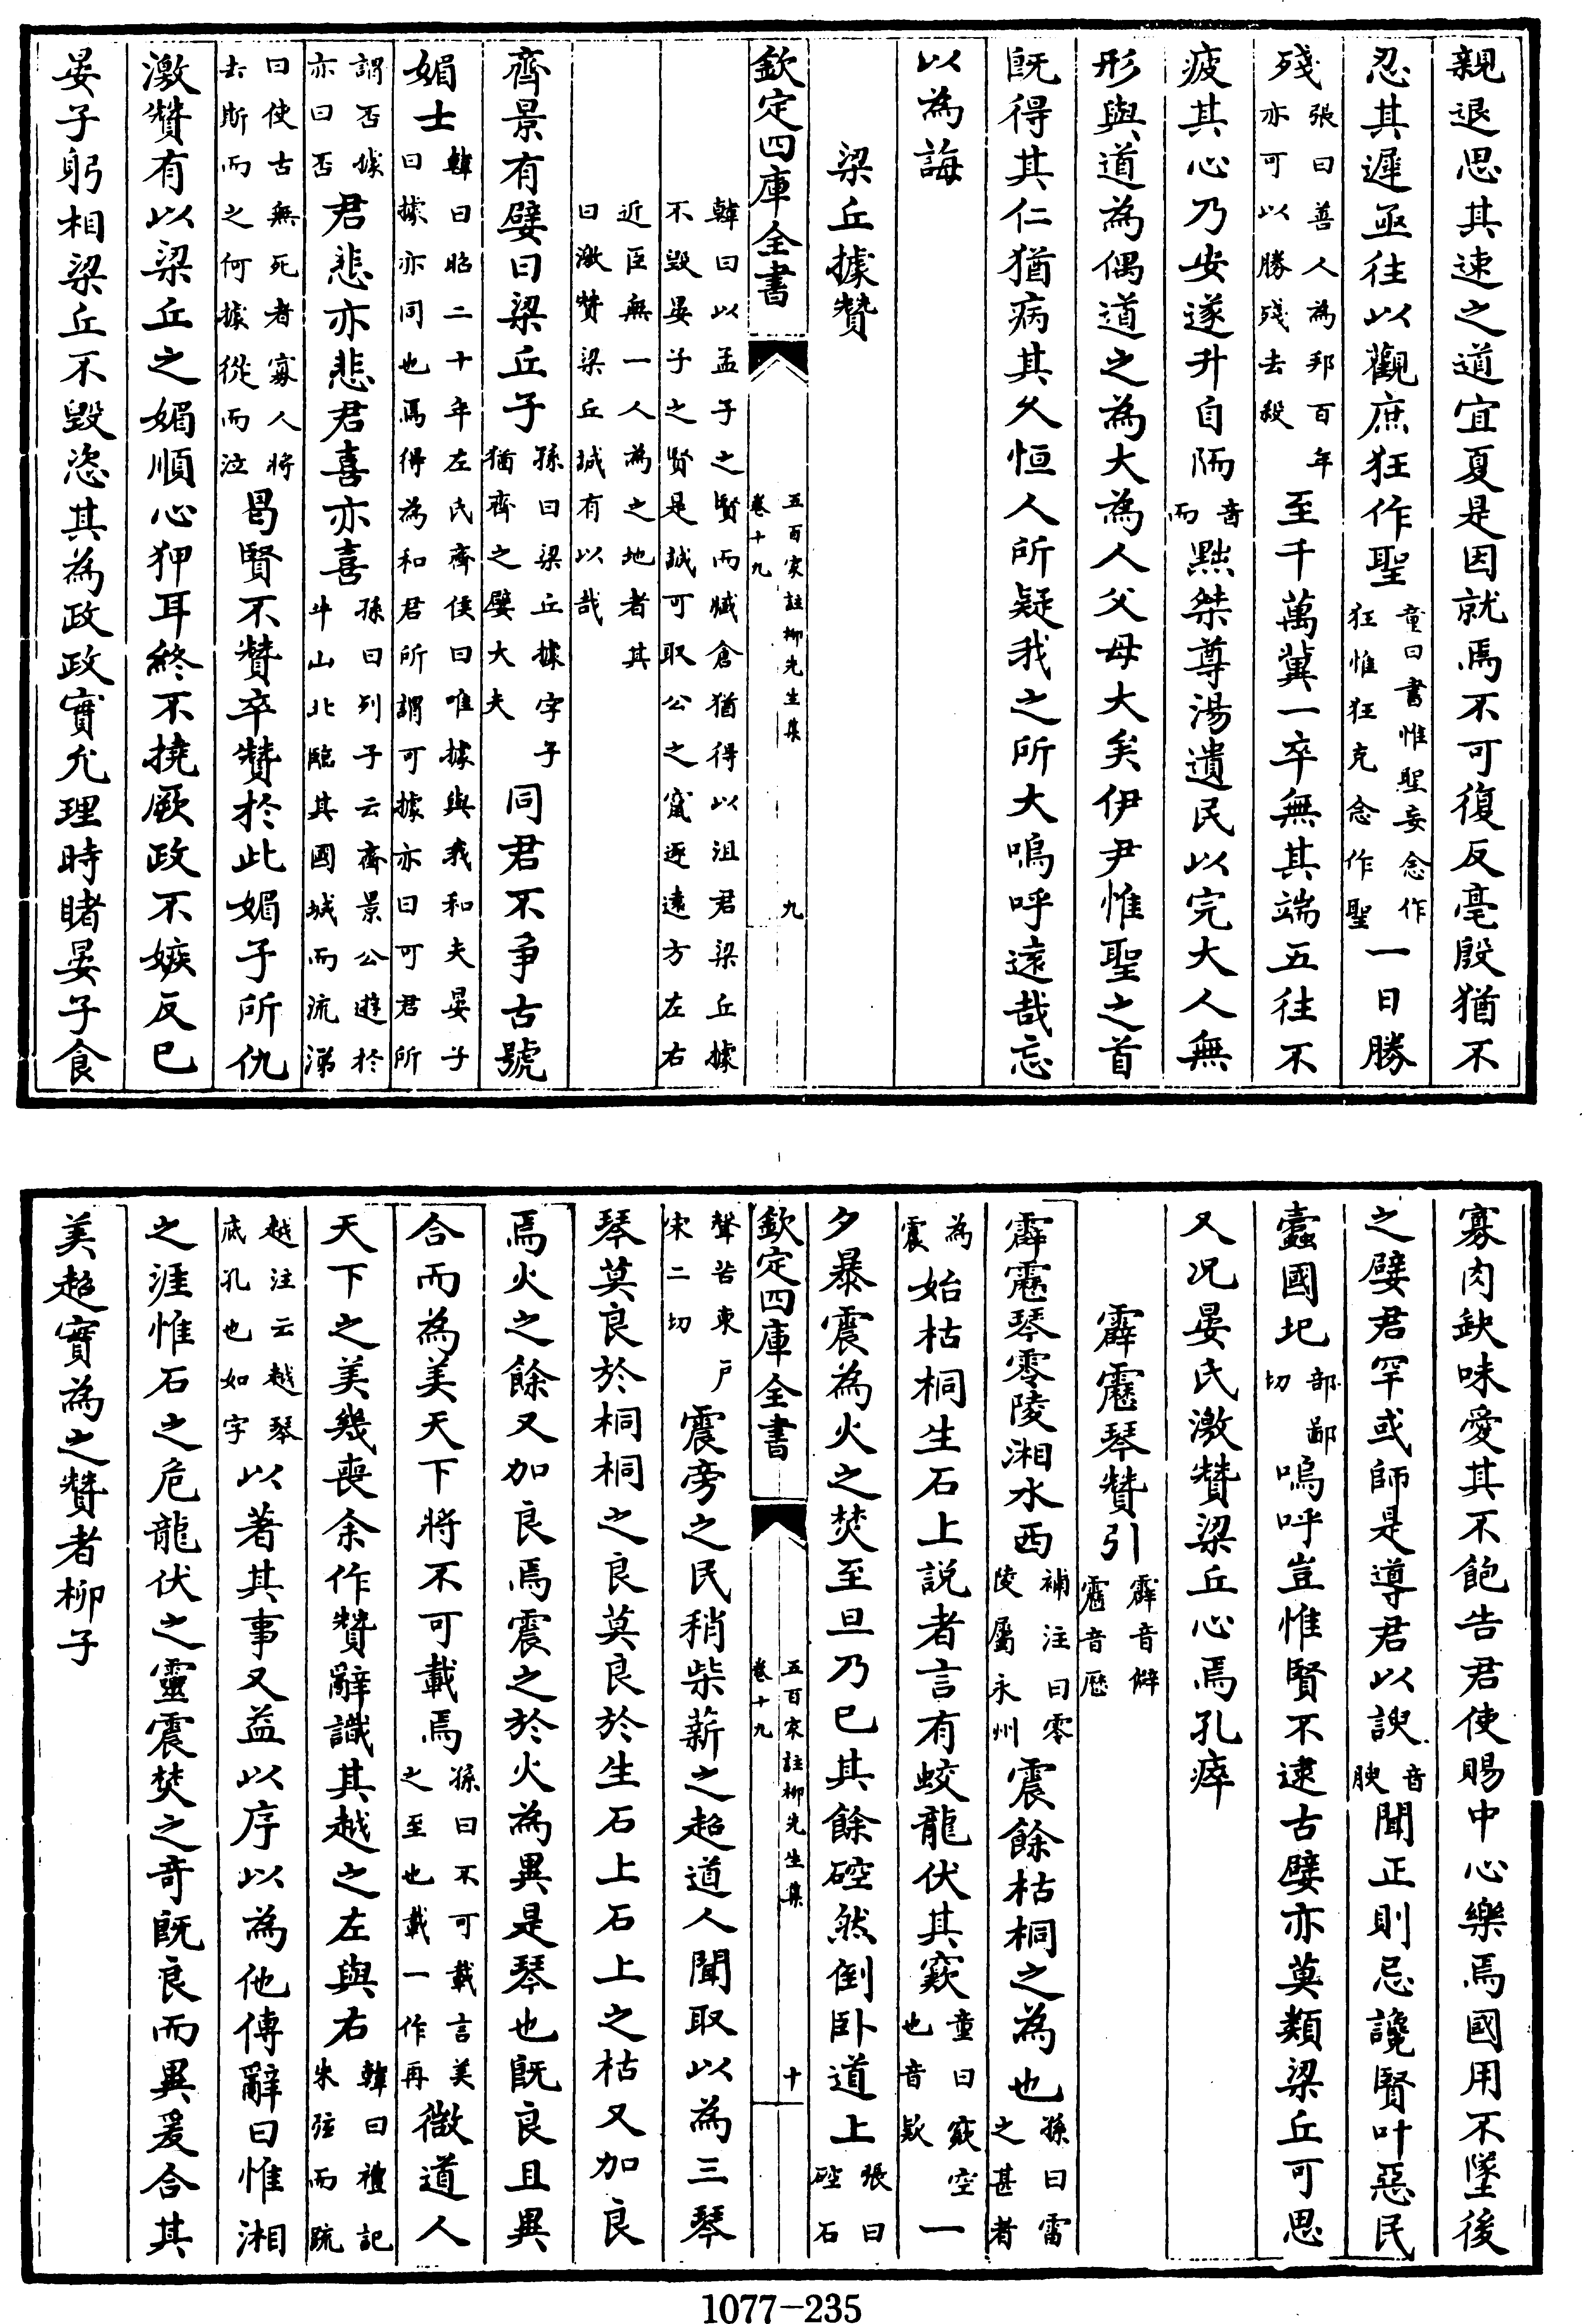 親退思其速之道宜夏是因就焉不可復反亳殷猶不
忍其遲亟往以觀庶狂作聖童曰書惟聖妄念作狂惟狂克念作聖一日勝
殘張曰善人為邦百年亦可以勝殘去殺至千萬冀一卒無其端五往不
疲其心乃安遂升自陑音而黜桀尊湯遺民以完大人無
形與道為偶道之為大為人父母大矣伊尹惟聖之首
旣得其仁猶病其久恒人所疑我之所大嗚呼遠哉忘
以為誨
梁丘據贊
欽定四庫全書
五百家註柳先生集
卷十九
九
韓曰以孟子之賢而臧倉猶得以沮君梁丘據
不毀晏子之賢是誠可取公之竄逐遠方左右
近臣無一人為之地者其
曰激贊梁丘誠有以哉
齊景有嬖曰梁丘子孫曰梁丘據字子猶齊之嬖大夫同君不爭古號
媚士韓曰昭二十年左氏齊侯曰唯據與我和夫晏子曰據亦同也焉得為和君所謂可據亦曰可君所
謂否據亦曰否君悲亦悲君喜亦喜孫曰列子云齊景公遊於牛山北臨其國城而流涕
曰使古無死者寡人將去斯而之何據從而泣曷賢不贊卒贊於此媚子所仇
激贊有以梁丘之媚順心狎耳終不撓厥政不嫉反已
晏子躬相梁丘不毀恣其為政政實允理時睹晏子食
寡肉缺味愛其不飽告君使賜中心樂焉國用不墜後
之嬖君罕或師是導君以諛音腴聞正則忌讒賢叶惡民
蠹國圮部鄙切嗚呼豈惟賢不逮古嬖亦莫類梁丘可思
又況晏氏激贊梁丘心焉孔瘁
霹靂琴贊引霹音僻靂音歷
霹靂琴零陵湘水西補注曰零陵屬永州震餘枯桐之為也孫曰雷之甚者
為震始枯桐生石上說者言有蛟龍伏其窾童曰窾空也音欵一
夕暴震為火之焚至旦乃已其餘硿然倒卧道上張曰硿石
欽定四庫全書
五百家註柳先生集
卷十九
十
聲苦東戶宋二切震旁之民稍柴薪之超道人聞取以為三琴
琴莫良於桐桐之良莫良於生石上石上之枯又加良
焉火之餘又加良焉震之於火為異是琴也旣良且異
合而為美天下將不可載焉孫曰不可載言美之至也載一作再微道人
天下之美幾喪余作贊辭識其越之左與右韓曰禮記朱弦而疏
越注云越琴底孔也如字以著其事又益以序以為他傳辭曰惟湘
之涯惟石之危龍伏之靈震焚之奇旣良而異爰合其
美超實為之贊者柳子
1077-235